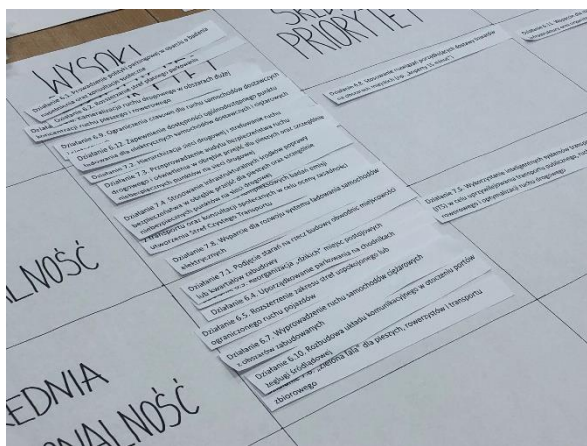 WYSOKI
PRIORYTET
Działanie 6.1. Prowadzenie polityki parkingowej w oparciu o badania
napełnienia oraz konsultacje społeczne
Działanie 6.2. Rozszerzanie stref płatnego parkowania
kanalizacja ruchu drogowego w obszarach dużej
koncentracji ruchu pieszego i rowerowego
Działanie 6.9. Ograniczenia czasowe dla ruchu samochodów dostawczych
Działanie 6.12. Zapewnienie dostępności ogólnodostępnego punktu
ładowania dla elektrycznych samochodów dostawczych i ciężarowych
Działanie 7.2. Hierarchizacja sieci drogowej i strefowanie ruchu
Działanie 7.3. Przeprowadzenie audytu bezpieczeństwa ruchu
drogowego i oświetlenia w obrębie przejść dla pieszych oraz szczególnie
niebezpiecznych punktów na sieci drogowej
Działanie 7.4. Stosowanie infrastrukturalnych środków poprawy
bezpieczeństwa w obrębie przejść dla pieszych oraz szczególnie
niebezpiecznych punktów na sieci drogowej
badań emisji
z transportu oraz konsultacji społecznych w celu oceny zasadności
utworzenia Stref Czystego Transportu
Działanie 7.8. Wsparcie dla rozwoju systemu ładowania samochodów
elektrycznych
Działanie 7.1. Podjęcie starań na rzecz budowy obwodnic miejscowości
lub kwartałów zabudowy
reorganizacja „dzikich” miejsc postojowych
Działanie 6.4. Uporządkowanie parkowania na chodnikach
Działanie 6.5. Rozszerzenie zakresu stref uspokojonego lub
ograniczonego ruchu pojazdów
Działanie 6.7. Wyprowadzenie ruchu samochodów ciężarowych
z obszarów zabudowanych
Działanie 6.10. Rozbudowa układu komunikacyjnego w otoczeniu portów
żeglugi śródlądowej
„zielona fala” dla pieszych, rowerzystów i transportu
zbiorowego
Działanie 6.8. Stosowanie rozwiązań porządkujących dostawy towarów
na obszarach miejskich (np. „koperty 15 minut”)
Działanie 6.11. Wsparcie dla
Działanie 7.5. Wykorzystanie inteligentnych systemów
(ITS) w celu uprzywilejowania transportu publicznego
rowerowego i optymalizacji ruchu drogowego
ALNOŚĆ
REDNIA
ONALNOŚĆ